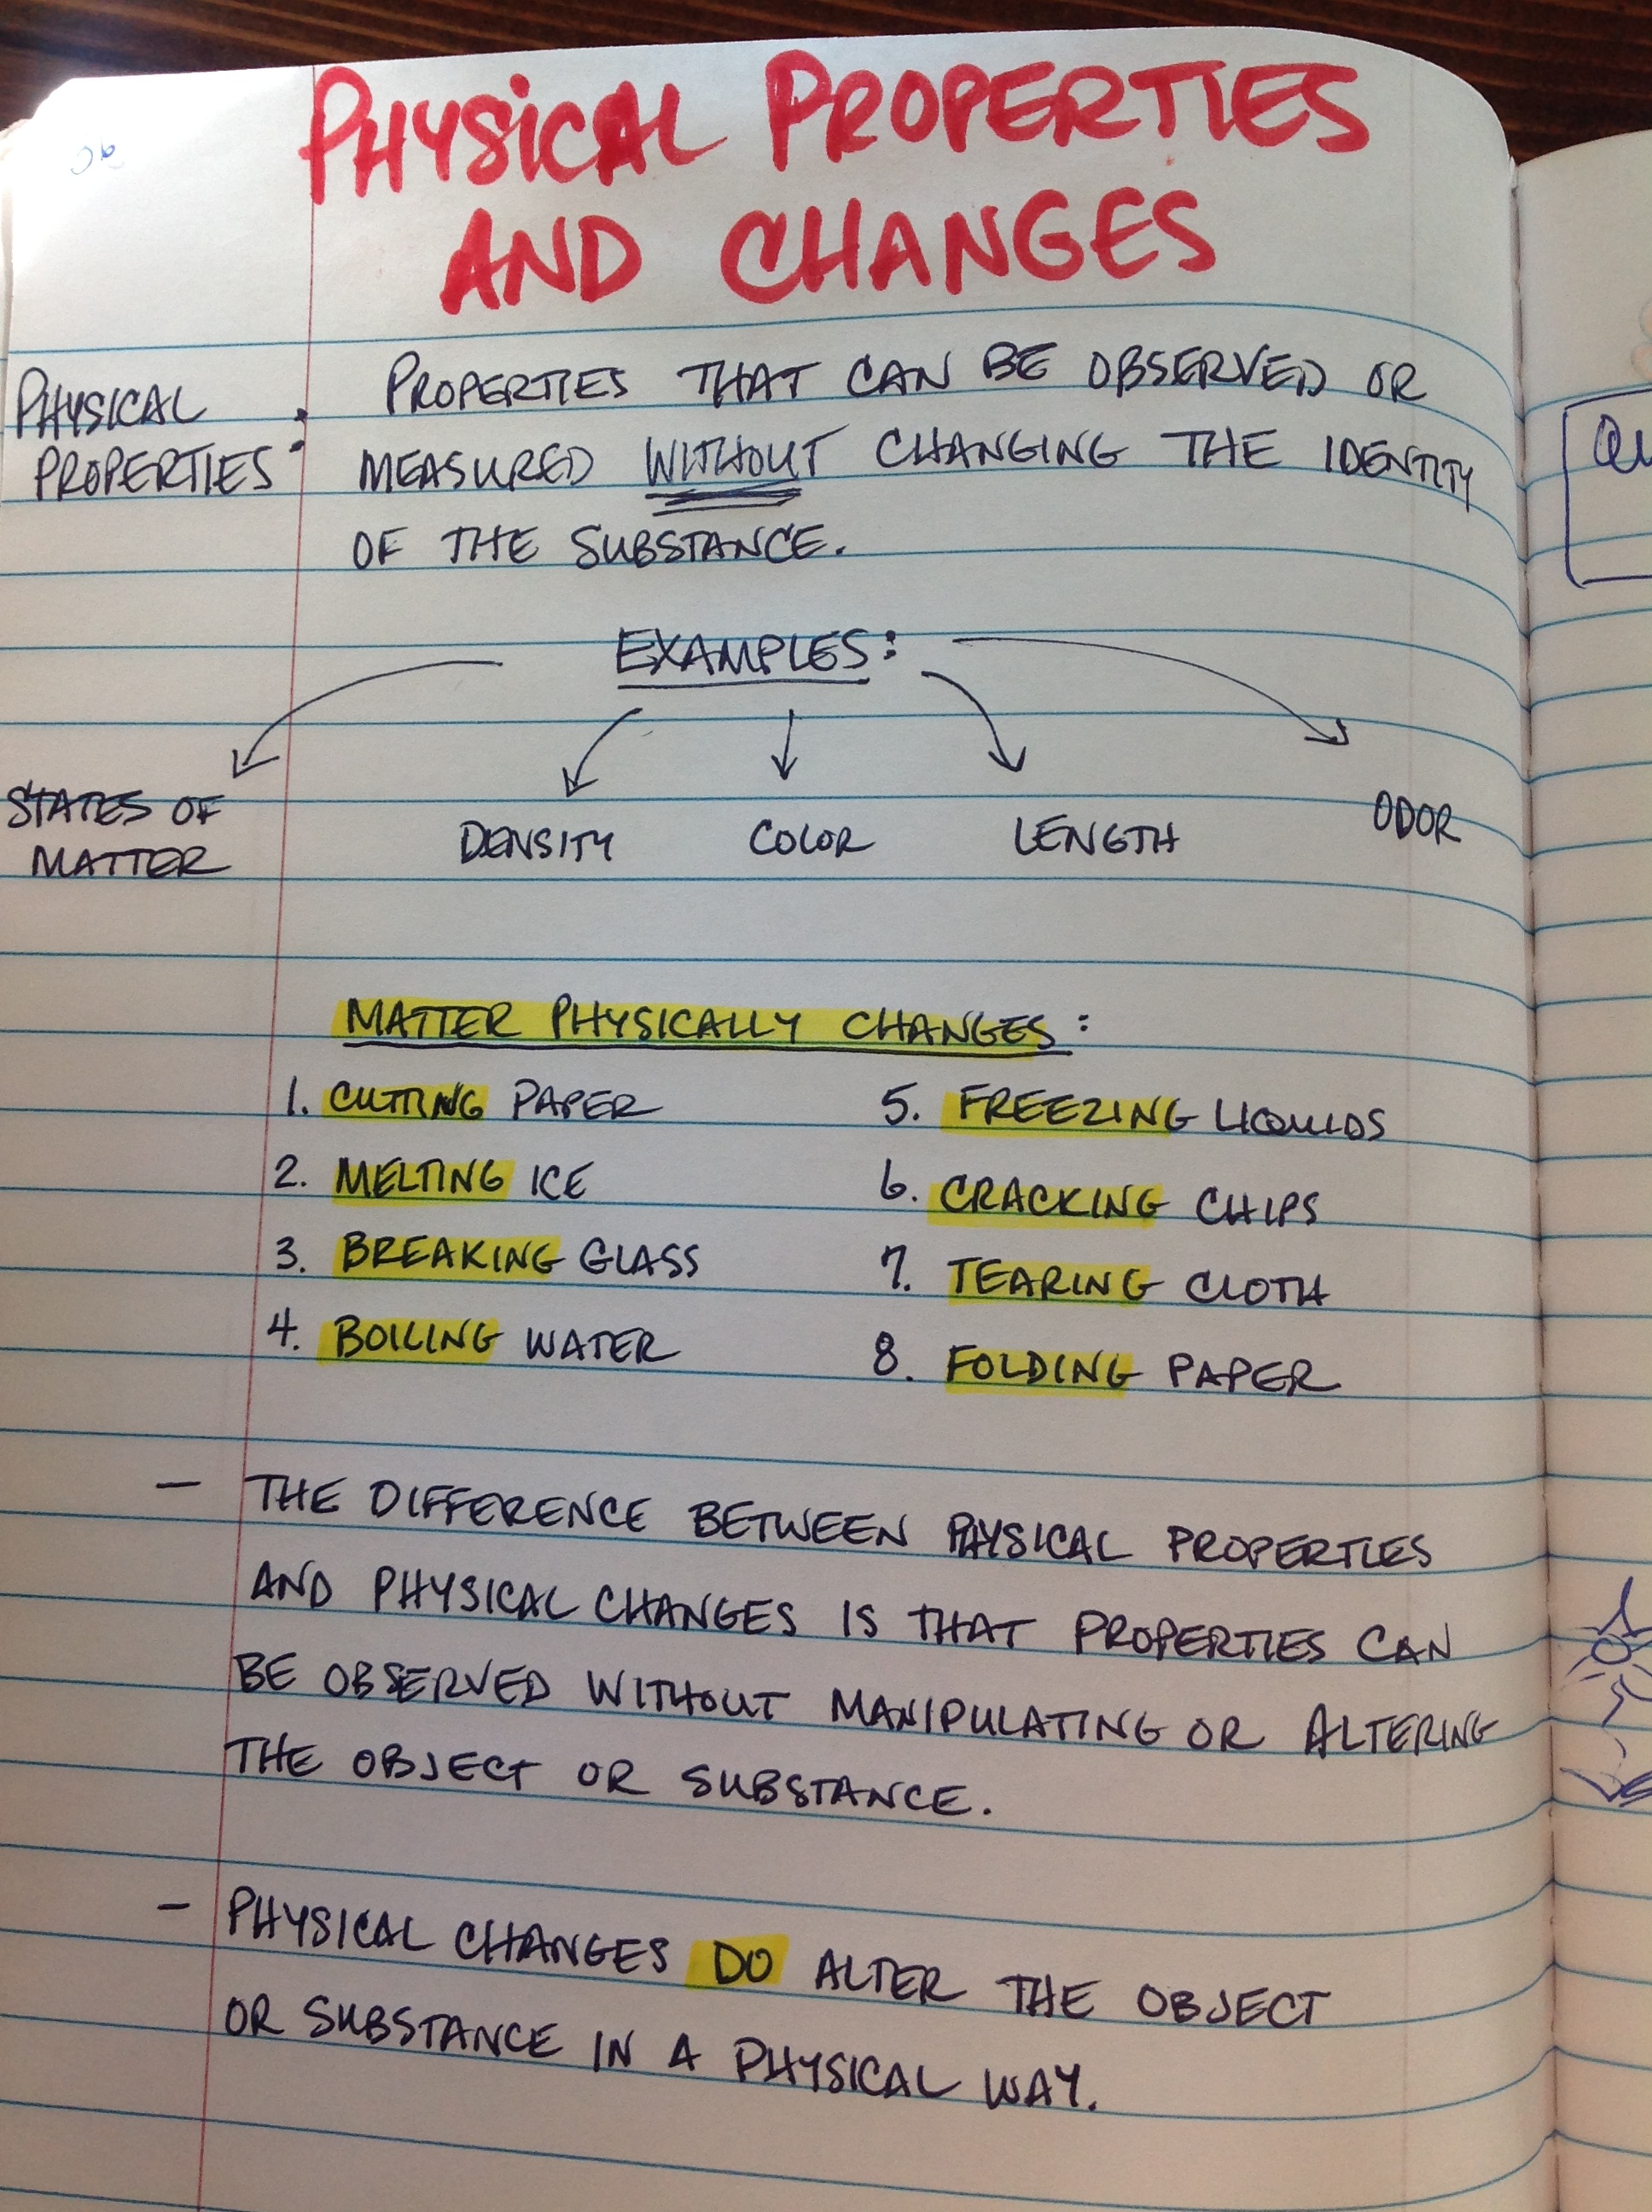 PHYSICAL PROPERTIES
AND CHANGES
PHYSICAL
PROPERTIES :
PROPERTIES THAT CAN BE OBSERVED OR
MEASURED WITHOUT CHANGING THE IDENTITY
OF THE SUBSTANCE.
EXAMPLES:
STATES OF
MATTER
DENSITY
COLOR
LENGTH
ODOR
MATTER PHYSICALLY CHANGES:
1. CUTTING PAPER
2. MELTING ICE
3. BREAKING GLASS
4. BOILING WATER
5. FREEZING LIQUIDS
6. CRACKING CHIPS
7. TEARING CLOTH
8. FOLDING PAPER
- THE DIFFERENCE BETWEEN PHYSICAL PROPERTIES
AND PHYSICAL CHANGES IS THAT PROPERTIES CAN
BE OBSERVED WITHOUT MANIPULATING OR ALTERING
THE OBJECT OR SUBSTANCE.
- PHYSICAL CHANGES DO ALTER THE OBJECT
OR SUBSTANCE IN A PHYSICAL WAY.